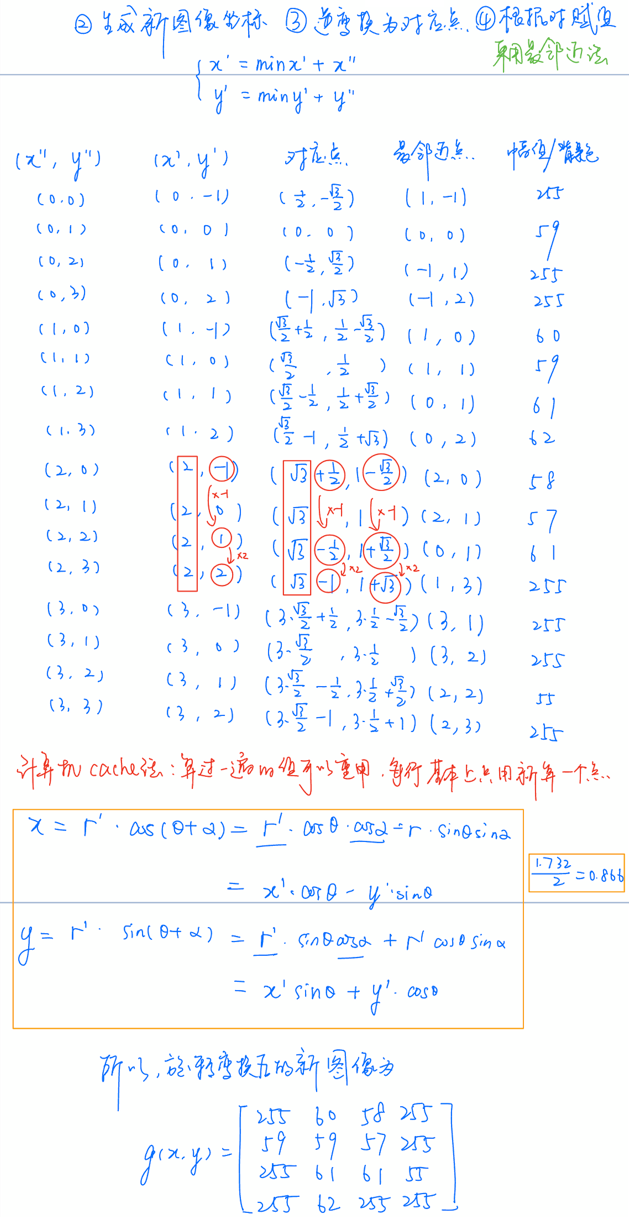 ② 生成新图像坐标 ③ 逆变换为对应点. ④ 根据对应赋值
采用最邻近法
{ x' = minx' + x''
{ y' = miny' + y''
(x'', y'') (x', y') 对应点 最邻近点 像素值/背景色
(0,0) (0, -1) (1/2, -√3/2) (1, -1) 255
(0,1) (0, 0) (0, 0) (0, 0) 59
(0,2) (0, 1) (-1/2, √3/2) (-1, 1) 255
(0,3) (0, 2) (-1, √3) (-1, 2) 255
(1,0) (1, -1) (√3/2+1/2, 1/2-√3/2) (1, 0) 60
(1,1) (1, 0) (√3/2, 1/2) (1, 1) 59
(1,2) (1, 1) (√3/2-1/2, 1/2+√3/2) (0, 1) 61
(1,3) (1, 2) (√3/2-1, 1/2+√3) (0, 2) 62
(2,0) (2, -1) (√3+1/2, 1-√3/2) (2, 0) 58
×-1 ×-1 ×-1
(2,1) (2, 0) (√3, 1) (2, 1) 57
(2,2) (2, 1) (√3-1/2, 1+√3/2) (0, 1) 61
×2 ×2 ×2
(2,3) (2, 2) (√3-1, 1+√3) (1, 3) 255
(3,0) (3, -1) (3·√3/2+1/2, 3·1/2-√3/2) (3, 1) 255
(3,1) (3, 0) (3·√3/2, 3·1/2) (3, 2) 255
(3,2) (3, 1) (3·√3/2-1/2, 3·1/2+√3/2) (2, 2) 55
(3,3) (3, 2) (3·√3/2-1, 3·1/2+1) (2, 3) 255
计算机cache法：算过一遍的值可以重用，每行基本上只用新算一个点.
x = r'·cos(θ+α) = r'·cosθ·cosα - r·sinθsinα
= x'·cosθ - y'·sinθ
1.732/2 = 0.866
y = r'·sin(θ+α) = r'·sinθcosα + r'cosθsinα
= x'sinθ + y'·cosθ
所以，旋转变换后的新图像为
g(x,y) = [ 255 60 58 255
59 59 57 255
255 61 61 55
255 62 255 255 ]